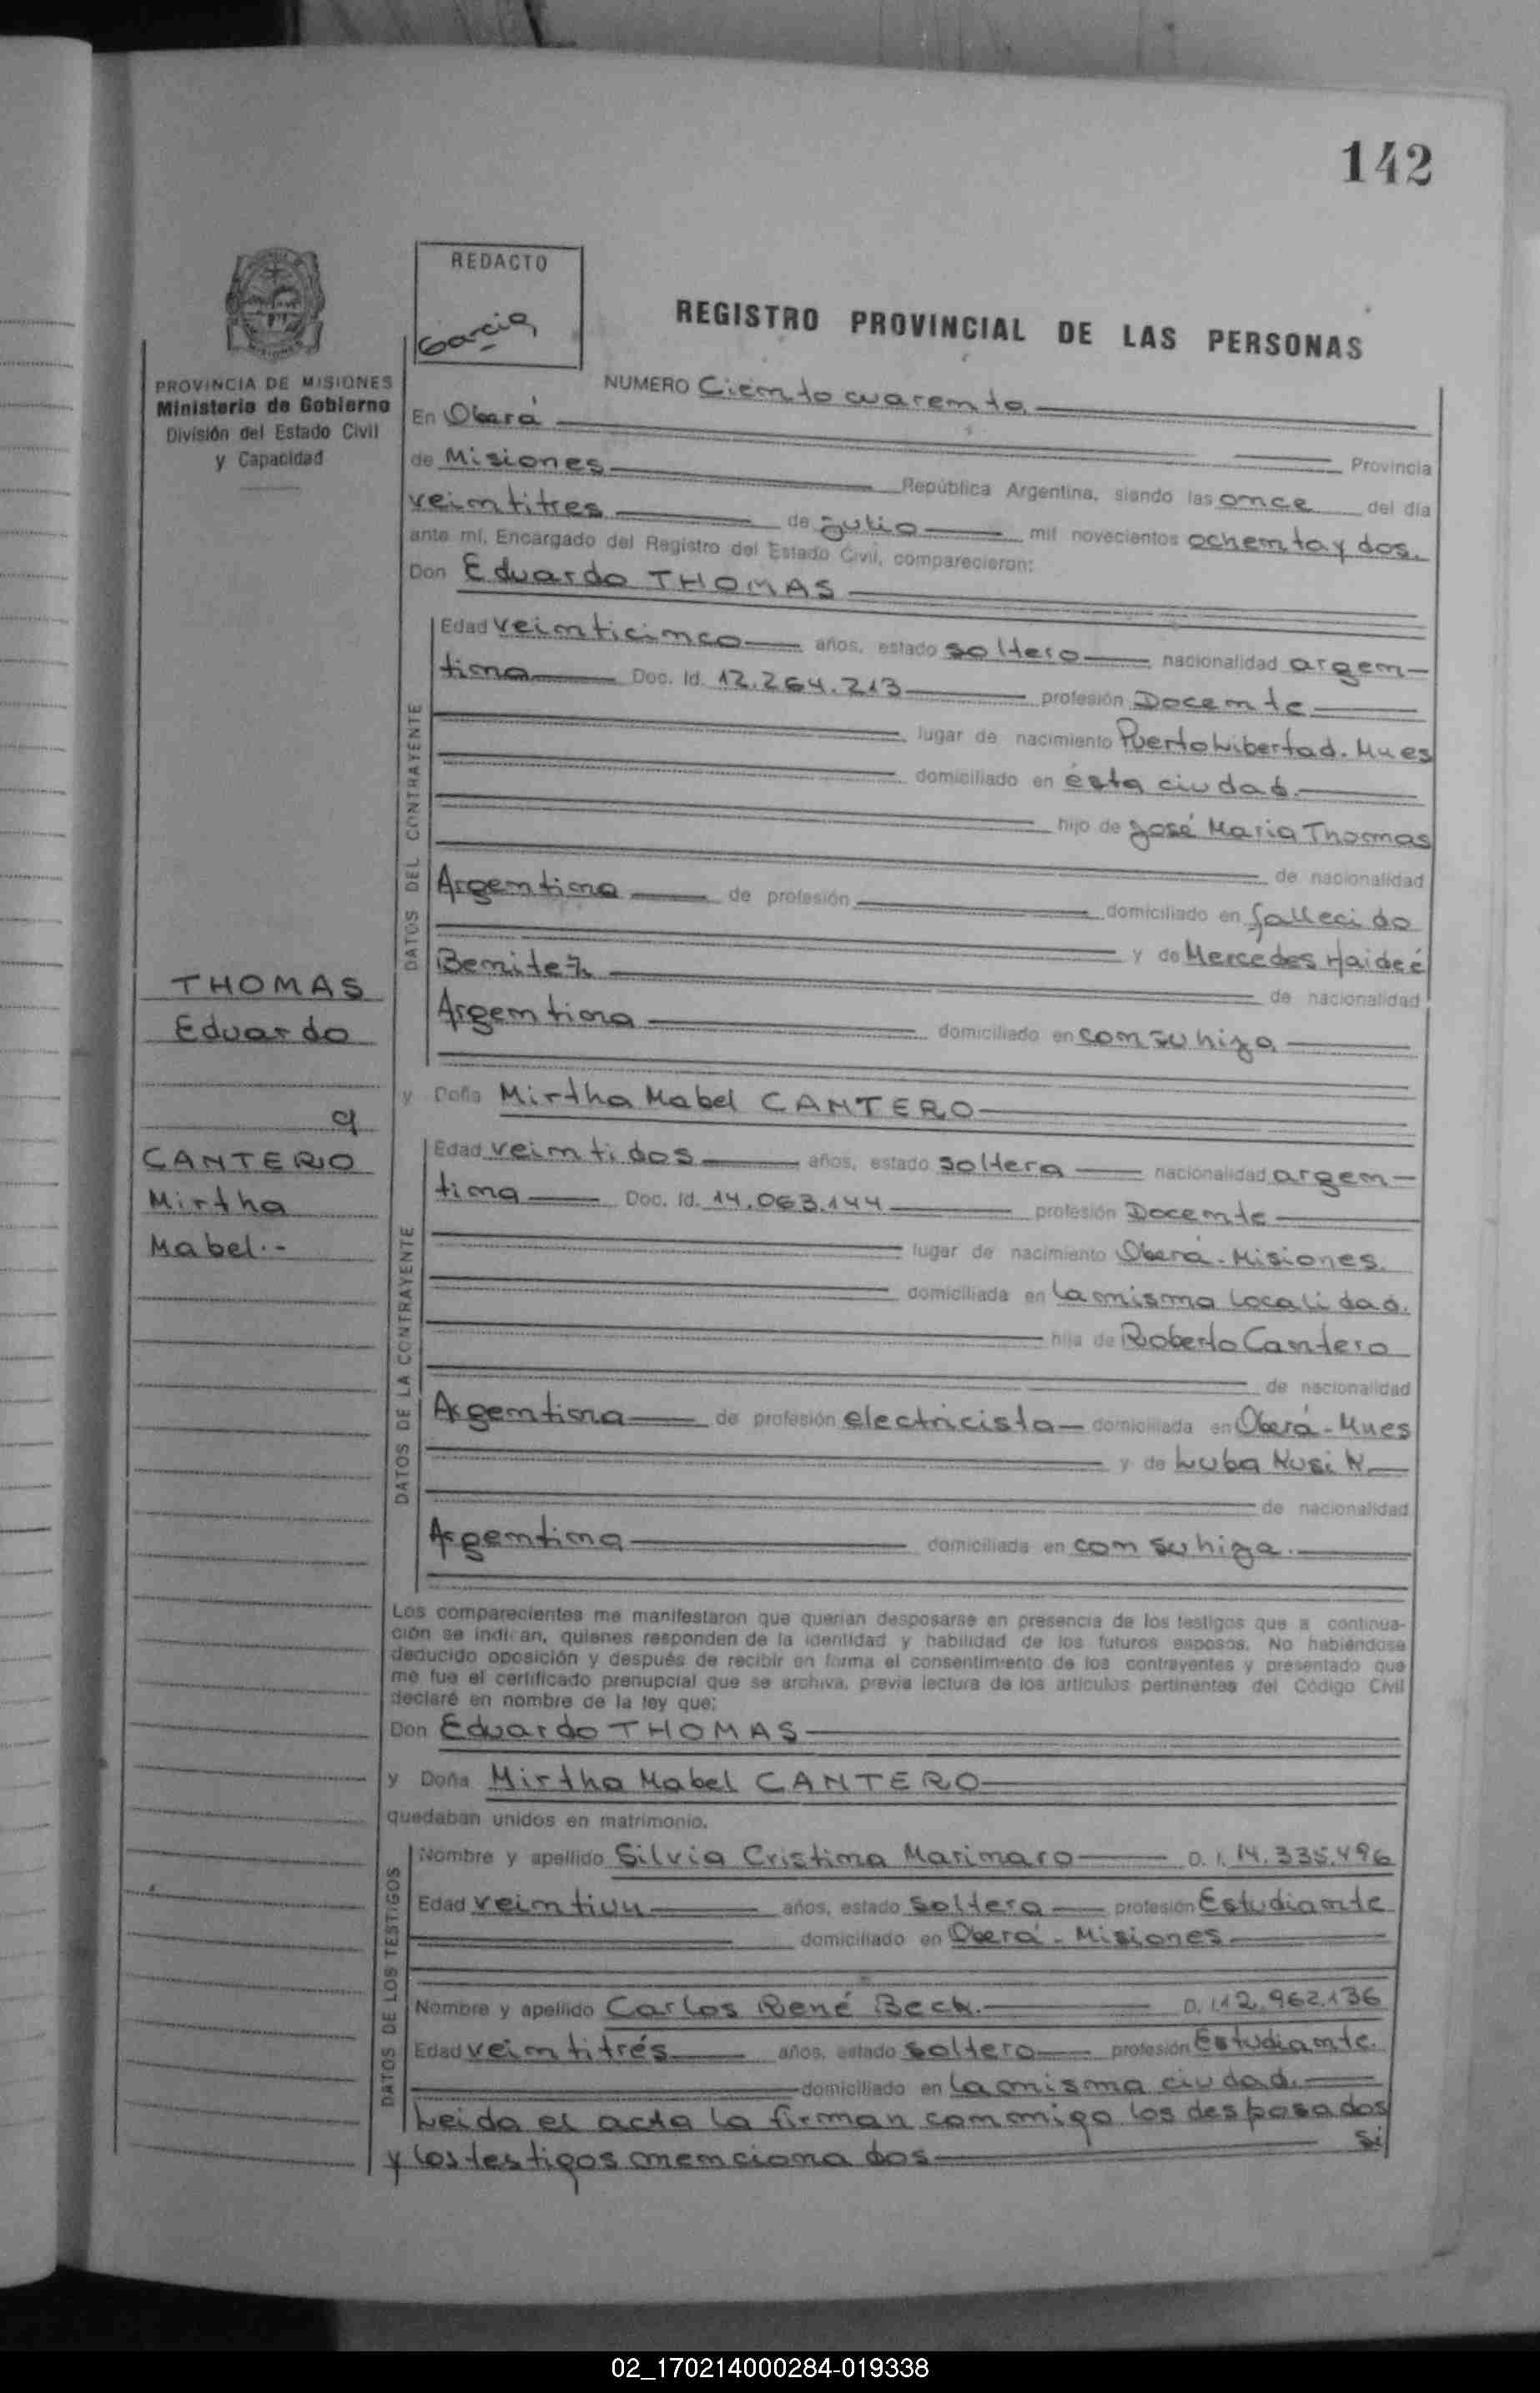 142
REDACTO
Garcia
REGISTRO PROVINCIAL DE LAS PERSONAS
PROVINCIA DE MISIONES
Ministerio de Gobierno
División del Estado Civil
y Capacidad
NUMERO Ciento cuarenta
En Oberá
Provincia
de Misiones República Argentina, siendo las once del día
veintitres de julio mil novecientos ochenta y dos.
ante mí, Encargado del Registro del Estado Civil, comparecieron:
Don Eduardo THOMAS
DATOS DEL CONTRAYENTE
Edad veinticinco años, estado soltero nacionalidad argen-
tina Doc. Id. 12.264.213 profesión Docente
lugar de nacimiento Puerto Libertad. Mnes
domiciliado en ésta ciudad.
hijo de José Maria Thomas
de nacionalidad
Argentina de profesión domiciliado en fallecido
y de Mercedes Haideé
Benitez
de nacionalidad
Argentina domiciliado en con su hijo
THOMAS
Eduardo
y
CANTERO
Mirtha
Mabel.-
y Doña Mirtha Mabel CANTERO
DATOS DE LA CONTRAYENTE
Edad veintidos años, estado soltera nacionalidad argen-
tina Doc. Id. 14.063.144 profesión Docente
lugar de nacimiento Oberá - Misiones.
domiciliada en la misma localidad.
hija de Roberto Cantero
de nacionalidad
Argentina de profesión electricista domiciliada en Oberá - Mnes
y de Luba
de nacionalidad
Argentina domiciliada en con su hija.
Los comparecientes me manifestaron que querian desposarse en presencia de los testigos que a continua-
ción se indican, quienes responden de la identidad y habilidad de los futuros esposos. No habiéndose
deducido oposición y después de recibir en forma el consentimiento de los contrayentes y presentado que
me fue el certificado prenupcial que se archiva, previa lectura de los artículos pertinentes del Código Civil
declaré en nombre de la ley que:
Don Eduardo THOMAS
y Doña Mirtha Mabel CANTERO
quedaban unidos en matrimonio.
DATOS DE LOS TESTIGOS
Nombre y apellido Silvia Cristina Marinaro D. I. 14.335.496
Edad veintiun años, estado soltera profesión Estudiante
domiciliado en Oberá - Misiones
Nombre y apellido Carlos René Beck. D. I. 12.962.136
Edad veintitrés años, estado soltero profesión Estudiante.
domiciliado en la misma ciudad.
Leida el acta la firman conmigo los desposados
y los testigos mencionados Si
02_170214000284-019338